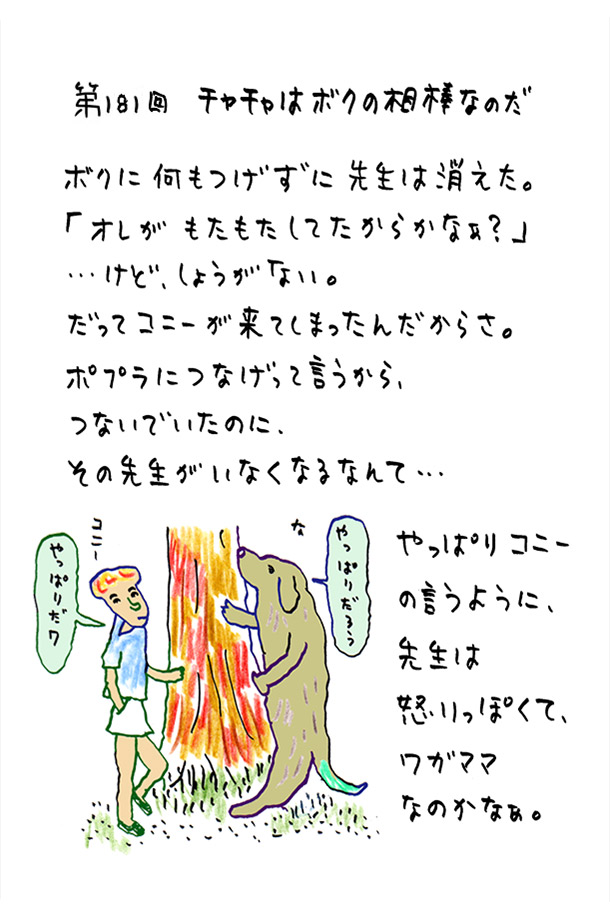 第181回 チャチャはボクの相棒なのだ
ボクに何もつげずに先生は消えた。
「オレがもたもたしてたからかなぁ?」
…けど、しょうがない。
だってコニーが来てしまったんだからさ。
ポプラにつなげって言うから、
つないでいたのに、
その先生がいなくなるなんて…
コニー
やっぱりだワ
な
やっぱりだろう
やっぱりコニー
の言うように、
先生は
怒りっぽくて、
ワガママ
なのかなぁ。